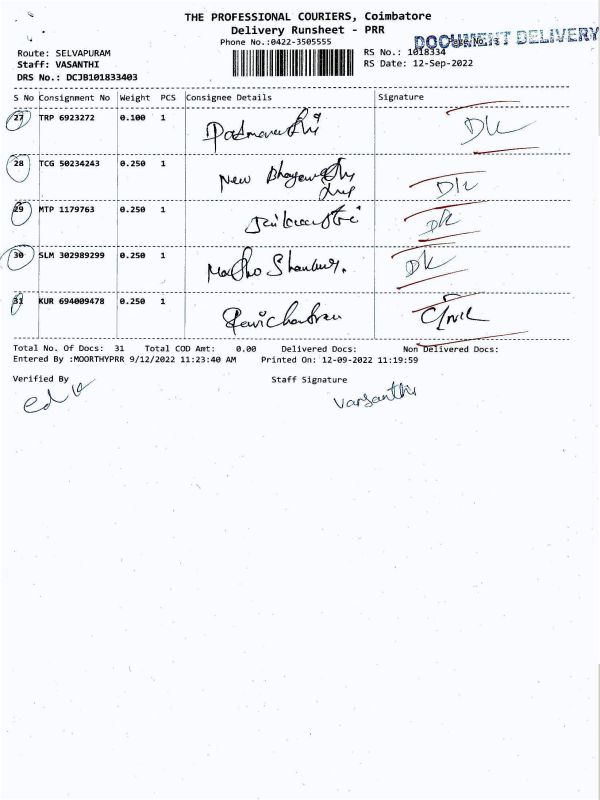 THE PROFESSIONAL COURIERS, Coimbatore
Delivery Runsheet - PRR
Phone No.:0422-3505555
DOCUMENT DELIVERY
Route: SELVAPURAM
RS No.: 1018334
Staff: VASANTHI
RS Date: 12-Sep-2022
DRS No.: DCJB101833403
S No Consignment No Weight PCS Consignee Details Signature
27 TRP 6923272 0.100 1
28 TCG 50234243 0.250 1 New
29 MTP 1179763 0.250 1
30 SLM 302989299 0.250 1
31 KUR 694009478 0.250 1 Ravichandran
Total No. Of Docs: 31 Total COD Amt: 0.00 Delivered Docs: Non Delivered Docs:
Entered By :MOORTHYPRR 9/12/2022 11:23:40 AM Printed On: 12-09-2022 11:19:59
Verified By Staff Signature
Vasanthi